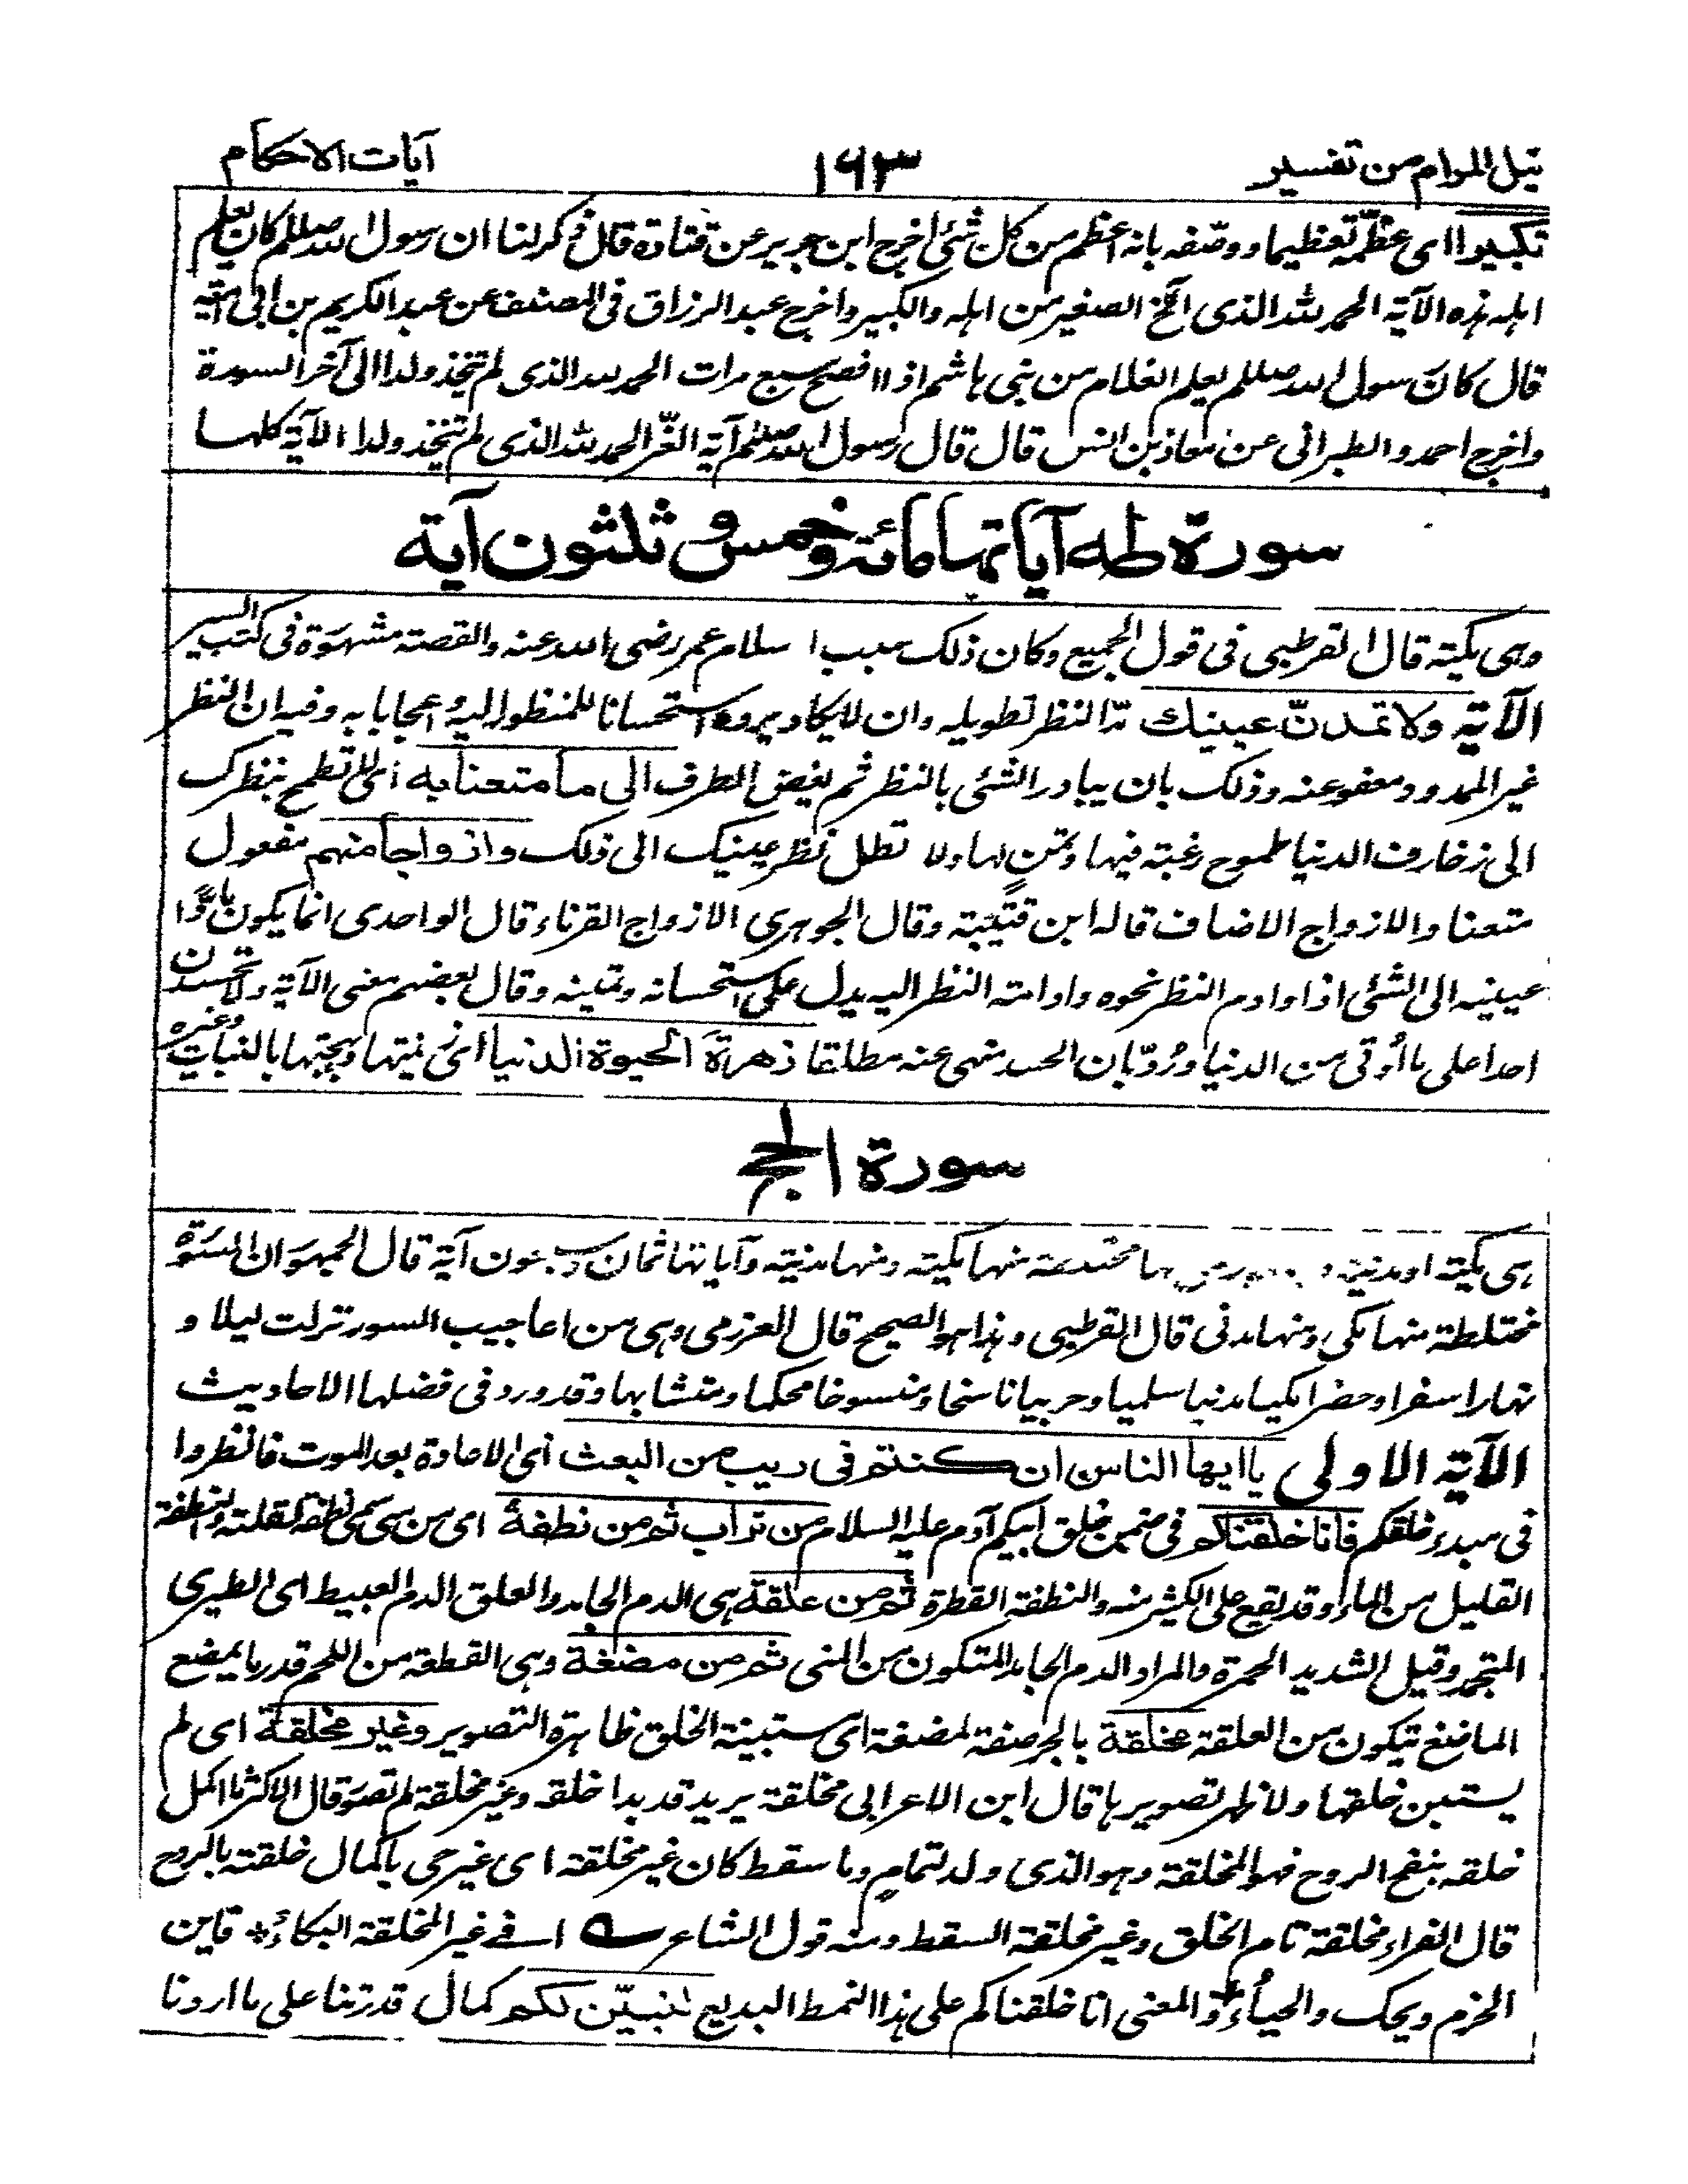 نيل المرام من تفسير ١٦٣ آيات الاحكام
تكبيرا اى عظّمه تعظيما ووصّفه بانه اعظم من كل شئ اخرج ابن جرير عن قتادة قال ذكر لنا ان رسول الله صللم كان يعلم
اهله هذه الآية الحمد لله الذى الخ الصغير من اهله والكبير واخرج عبد الرزاق فى المصنف عن عبد الكريم بن ابى امية
قال كان رسول الله صللم يعلم الغلام من بنى هاشم اذا افصح سبع مرات الحمد لله الذى لم تتخذ ولدا الى آخر السورة
واخرج احمد والطبرانى عن معاذ بن انس قال قال رسول الله صللم آية العزّ الحمد لله الذى لم تتخذ ولدا الآية كلها
سورة طه آياتها مائة وخمس و ثلثون آية
وهى مكية قال القرطبى فى قول الجميع وكان ذلك سبب اسلام عمر رضى الله عنه والقصة مشهورة فى كتب السير
الآية ولا تمدنّ عينيك مدّ النظر تطويله وان لا يكاد يرده استحسانا للمنظور اليه و اعجابا به وفيه ان النظر
غير الممدود معفو عنه وذلك بان يبادر الشئ بالنظر ثم يغض الطرف الى ما متعنا به اى لا تطمح بنظرك
الى زخارف الدنيا طموح رغبة فيها وتمن لها ولا تطل نظر عينيك الى ذلك وازواجا منهم مفعول
متعنا والازواج الاصناف قاله ابن قتيبة وقال الجوهرى الازواج القرناء قال الواحدى انما يكون مادًّا
عينيه الى الشئ اذا ادام النظر نحوه وادامة النظر اليه يدل على استحسانه وتمنيه وقال بعضهم معنى الآية ولا تحسدن
احدا على ما اُوتى من الدنيا ورُدّ بان الحسد منهى عنه مطلقا زهرة الحيوة الدنيا اى زينتها وبهجتها بالنبات وغيره
سورة الحج
هى مكية او مدنية منها مكية ومنها مدنية وآياتها ثمان وسبعون آية قال الجمهور ان السورة
مختلطة منها مكى ومنها مدنى قال القرطبى وهذا هو الصحيح قال العزرمى وهى من اعاجيب السور نزلت ليلا و
نهارا سفرا وحضرا مكيا مدنيا سلميا وحربيا ناسخا ومنسوخا محكما ومتشابها وقد ورد فى فضلها الاحاديث
الآية الاولى يا ايها الناس ان كنتم فى ريب من البعث اى الاعادة بعد الموت فانظروا
فى مبدء خلقكم فانا خلقناكم فى ضمن خلق ابيكم آدم عليه السلام من تراب ثم من نطفة اى من منى سمى نطفة لقلته والنطفة
القليل من الماء وقد يقع على الكثير منه والنطفة القطرة ثم من علقة هى الدم الجامد والعلق الدم العبيط اى الطرى
المتجمد وقيل الشديد الحمرة والمراد الدم الجامد المتكون من المنى ثم من مضغة وهى القطعة من اللحم قدر ما يمضغ
الماضغ تتكون من العلقة مخلقة بالجر صفة لمضغة اى مستبينة الخلق ظاهرة التصوير وغير مخلقة اى لم
يستبن خلقها ولا ظهر تصويرها قال ابن الاعرابى مخلقة يريد قد بدا خلقه وغير مخلقة لم تصور قال الاكثر ما اكمل
خلقه بنفخ الروح فهو المخلقة وهو الذى ولد لتمام وما سقط كان غير مخلقة اى غير حى باكمال خلقته بالروح
قال الفراء مخلقة تام الخلق وغير مخلقة السقط ومنه قول الشاعر اے فے غير المخلقة البكاءُ٭ فاين
الحزم ويحك والحياءُ٭ والمعنى انا خلقناكم على هذا النمط البديع لنبيّن لكم كمال قدرتنا على ما اردنا